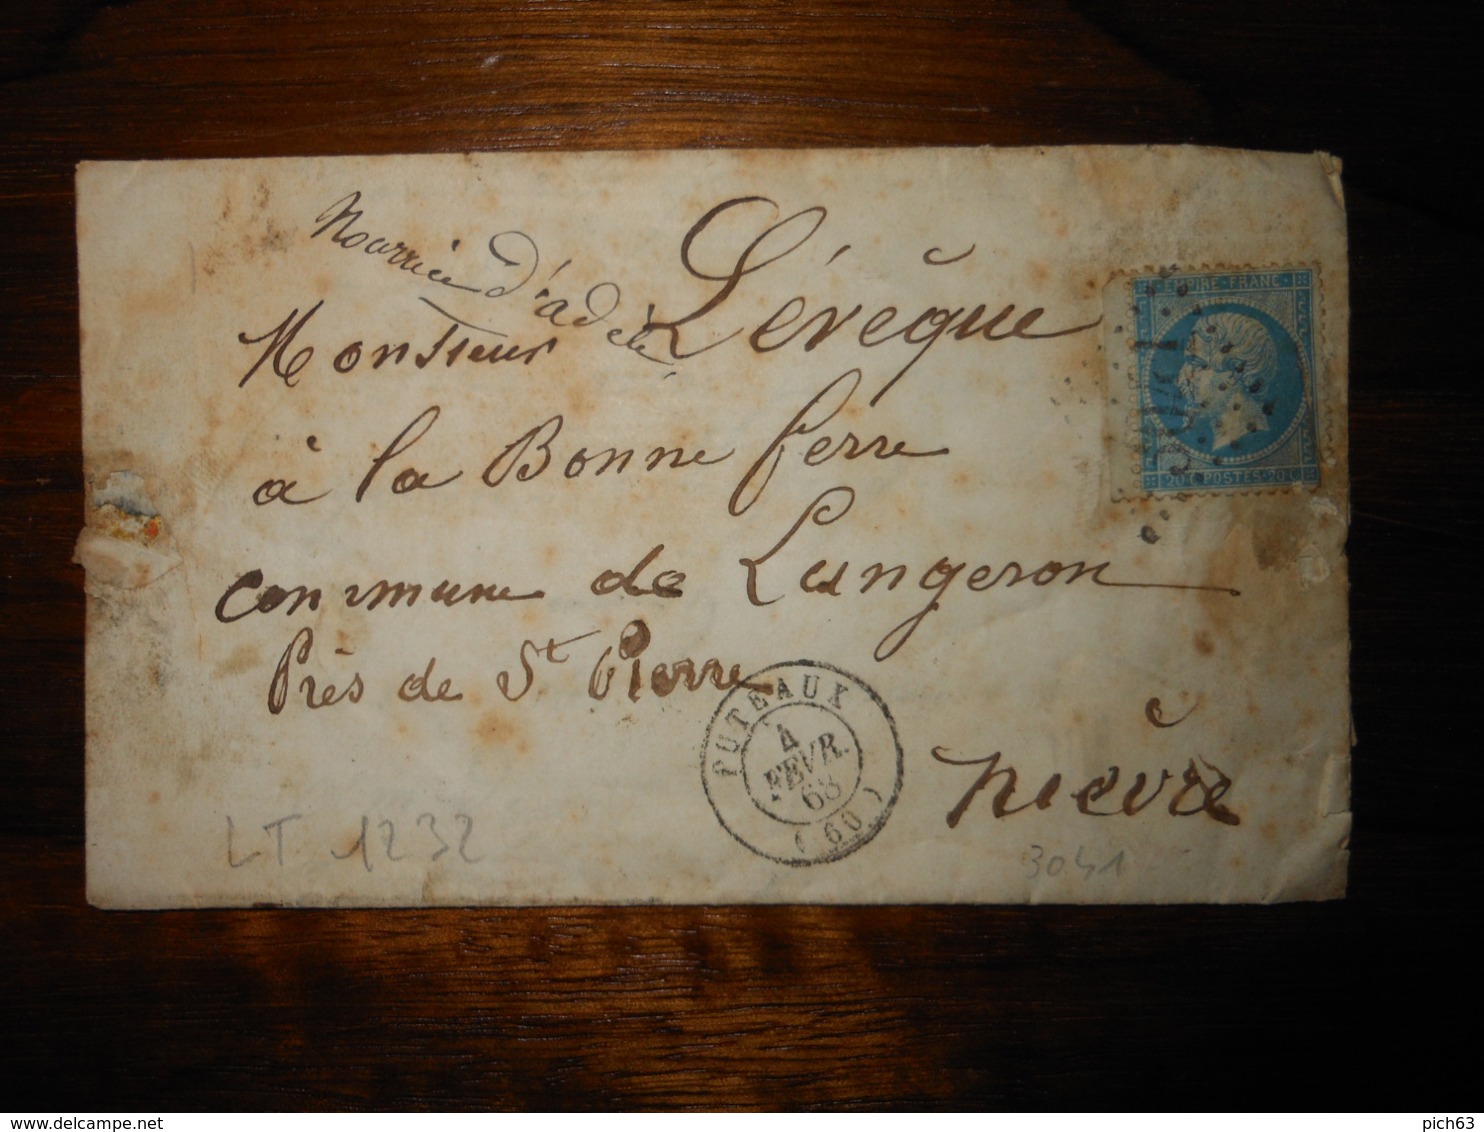 Nourrice d'adèle
Monsieur Lévêque
à la Bonne ferre
commune de Langeron
Près de St Pierre
nièvre
EMPIRE·FRANC·
20 C POSTES 20 C
3041
PUTEAUX
4
FEVR.
68
( 60 )
LT 1232
3041
pich63